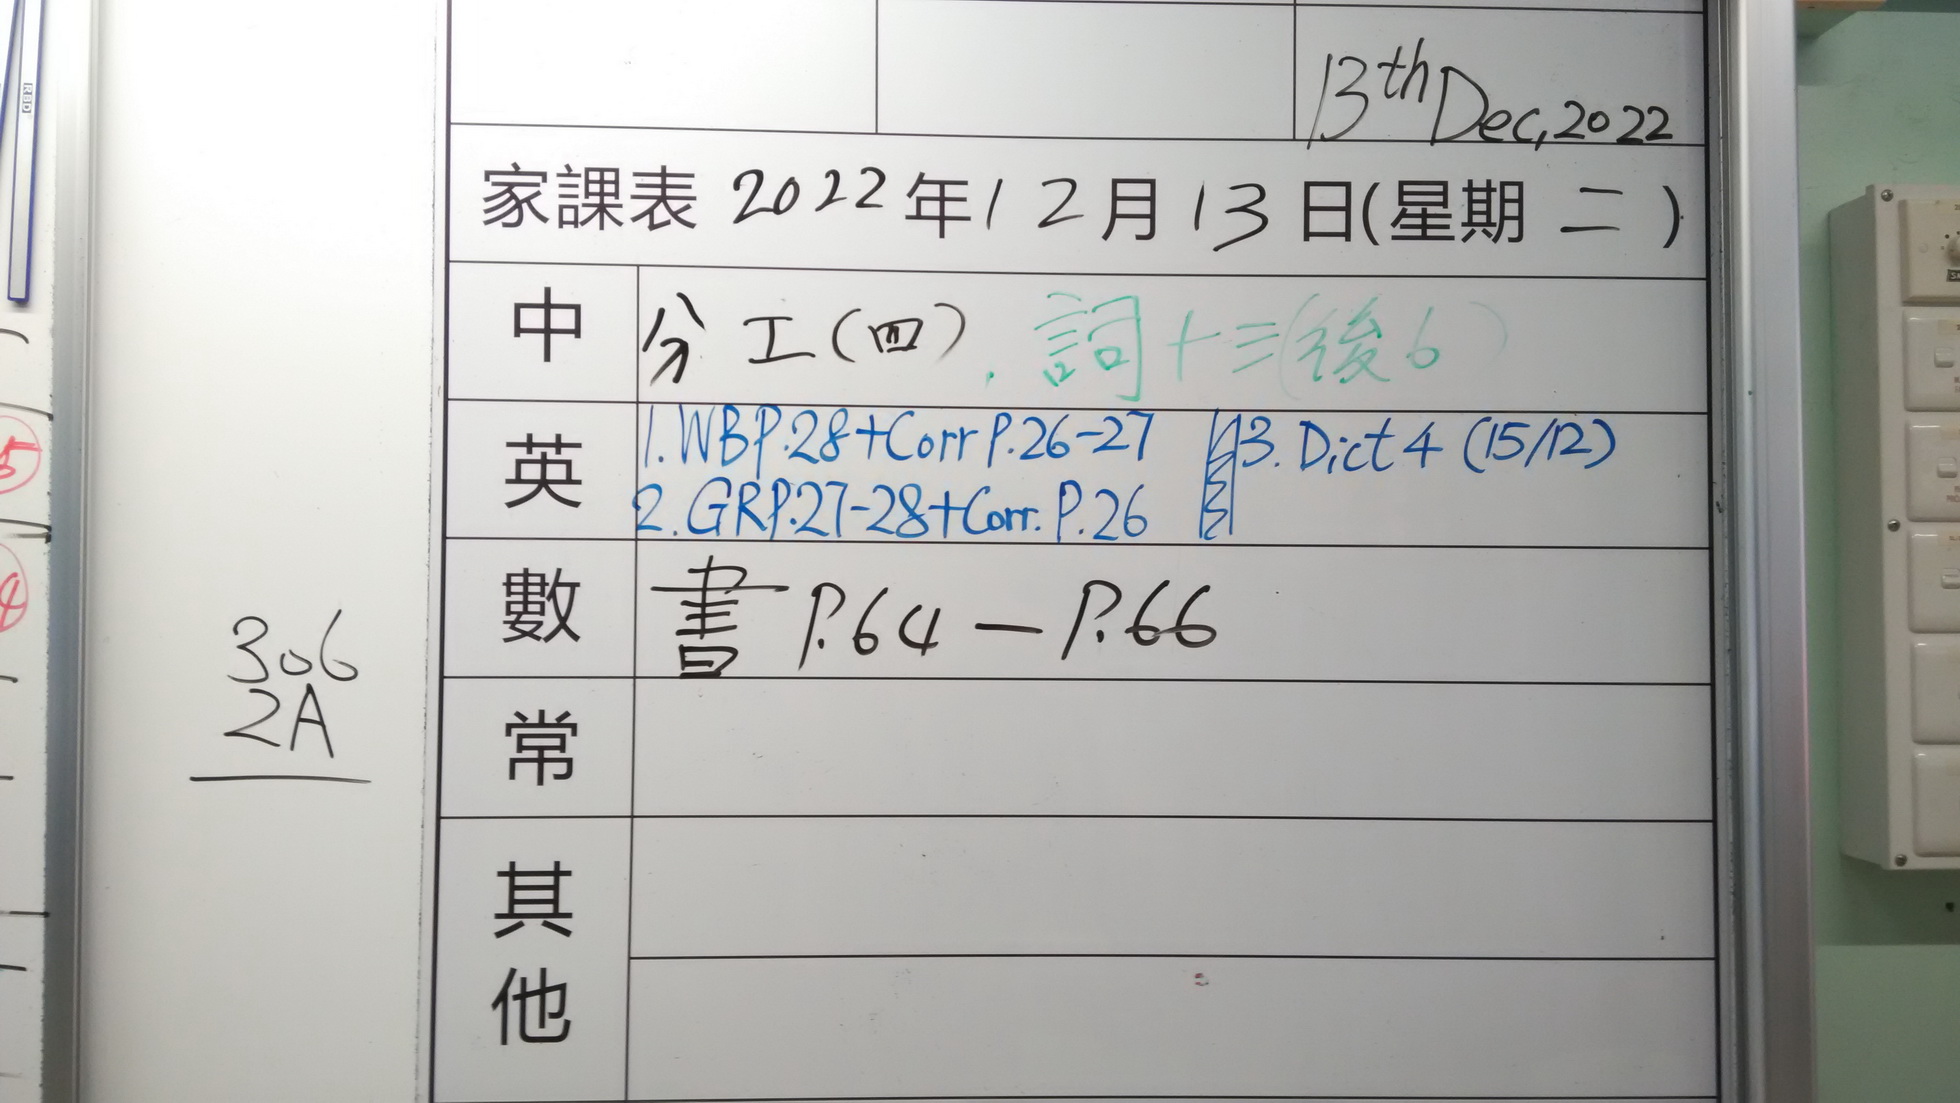 13th Dec, 2022
家課表 2022 年 12 月 13 日(星期 二 )
中 分工(四), 詞十三(後6)
英 1. WB P.28+Corr P.26-27 3. Dict 4 (15/12)
2. GR P.27-28+Corr. P.26
數 書 P.64 — P.66
常
其他
306
2A
5
4